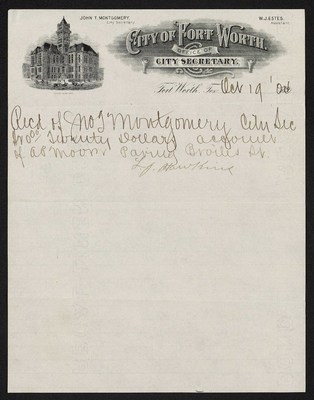 JOHN T. MONTGOMERY,
CITY SECRETARY.
W.J. ESTES,
ASSISTANT.
CITY OF FORT WORTH.
OFFICE OF
CITY SECRETARY.
Fort Worth, Tex. Oct 19 '06
Recd of Jno T Montgomery City Sec
Twenty Dollars account
of A P Moore Paving St.